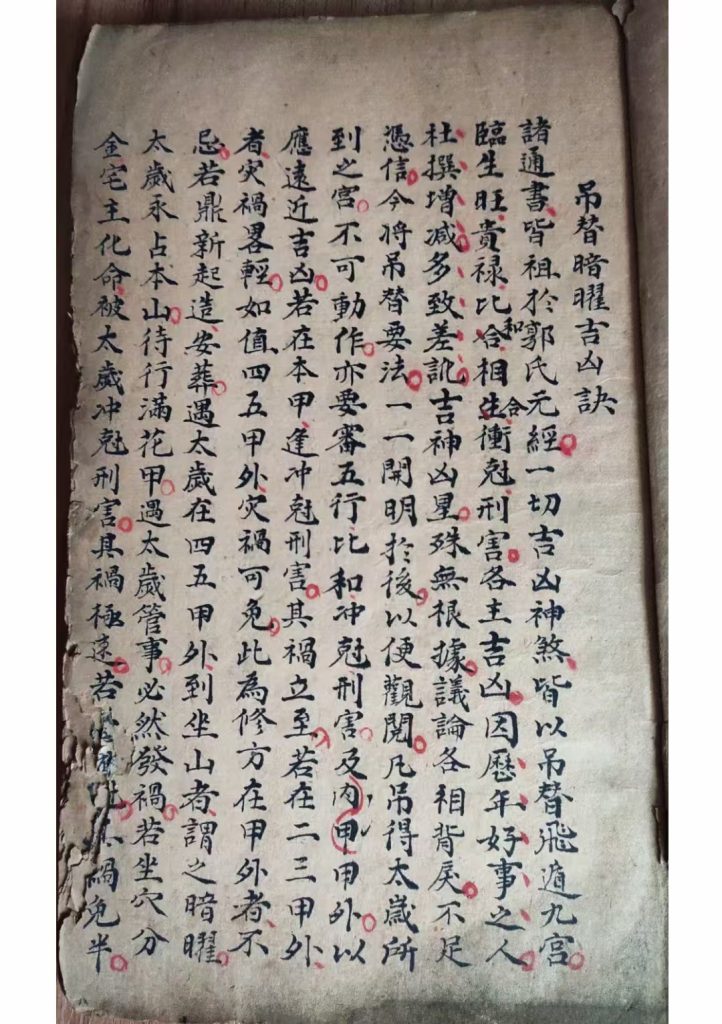 吊替暗曜吉凶訣
諸通書皆祖於郭氏元經一切吉凶神煞皆以吊替飛遁九宮
臨生旺貴祿比和合相生合衝尅刑害各主吉凶因歷年好事之人
杜撰增减多致差訛吉神凶星殊無根據議論各相背戾不足
憑信今將吊替要法一一開明於後以便觀閱凡吊得太歲所
到之宮不可動作亦要審五行比和冲尅刑害及內甲甲外以
應遠近吉凶若在本甲逢冲尅刑害其禍立至若在二三甲外
者灾禍畧輕如值四五甲外灾禍可免此為修方在甲外者不
忌若鼎新起造安葬遇太歲在四五甲外到坐山者謂之暗曜
太歲永占本山待行滿花甲遇太歲管事必然發禍若坐穴分
金宅主化命被太歲冲尅刑害其禍極速若禍免半